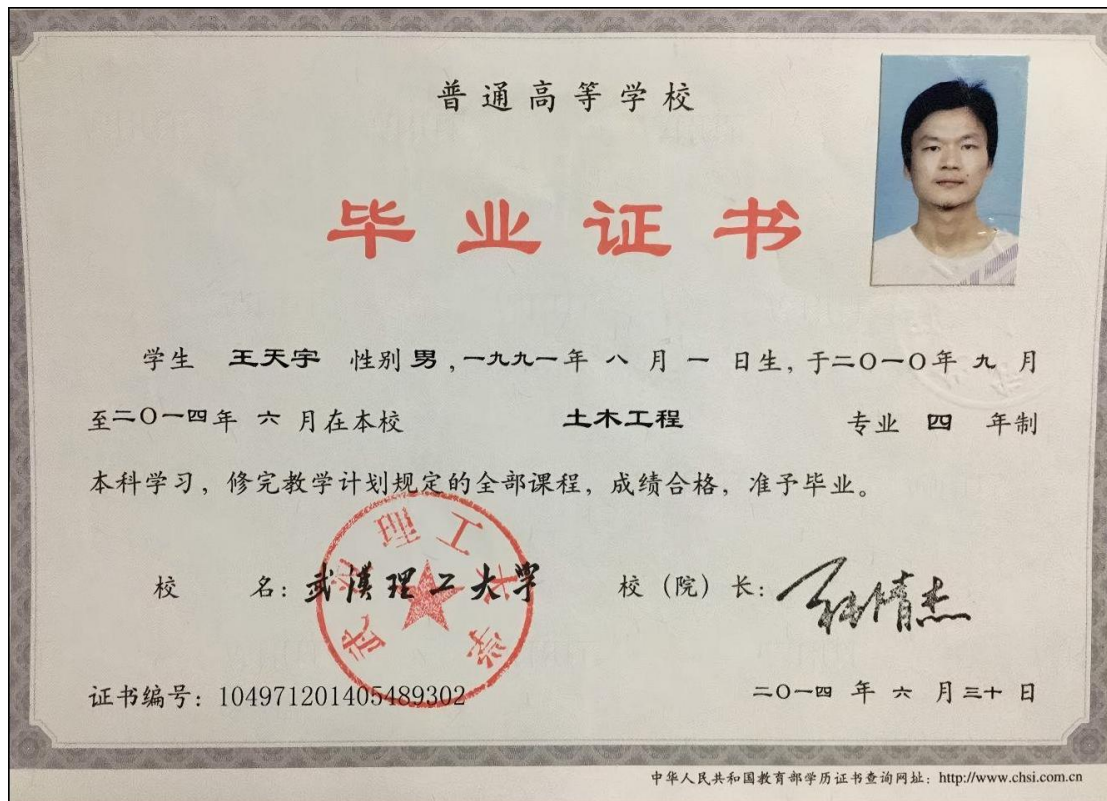 普通高等学校
毕业证书
学生 王天宇 性别 男，一九九一年 八 月 一 日生，于二〇一〇年 九 月
至二〇一四年 六 月在本校 土木工程 专业 四 年制
本科学习，修完教学计划规定的全部课程，成绩合格，准予毕业。
校 名：武汉理工大学 校（院）长：
武汉理工大学
证书编号：104971201405489302 二〇一四 年 六 月三十 日
中华人民共和国教育部学历证书查询网址：http://www.chsi.com.cn